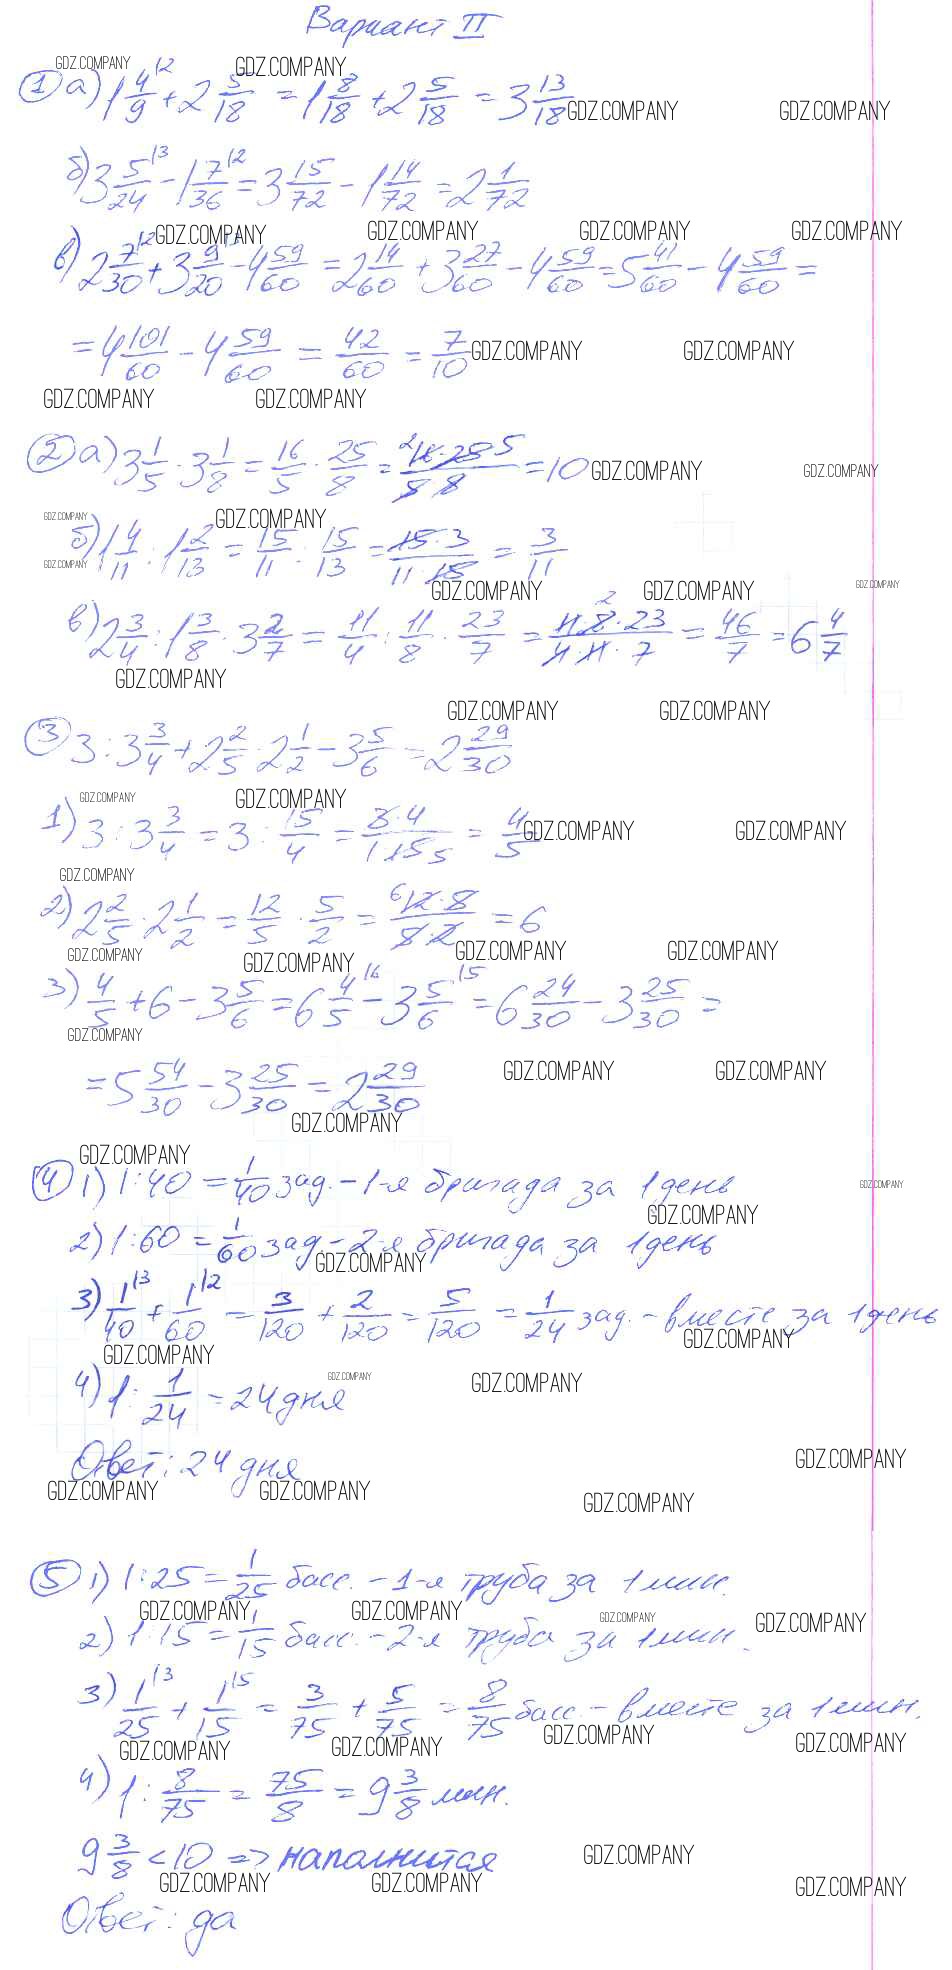 Вариант II
GDZ.COMPANY GDZ.COMPANY
① а) 1 4/9^(2 + 2 5/18 = 1 8/18 + 2 5/18 = 3 13/18
GDZ.COMPANY GDZ.COMPANY
б) 3 5/24^(3 - 1 7/36^(2 = 3 15/72 - 1 14/72 = 2 1/72
GDZ.COMPANY GDZ.COMPANY GDZ.COMPANY GDZ.COMPANY
в) 2 7/30^(2 + 3 9/20 - 4 59/60 = 2 14/60 + 3 27/60 - 4 59/60 = 5 41/60 - 4 59/60 =
= 4 101/60 - 4 59/60 = 42/60 = 7/10
GDZ.COMPANY GDZ.COMPANY
GDZ.COMPANY GDZ.COMPANY
② а) 3 1/5 · 3 1/8 = 16/5 · 25/8 = 16·25/5·8 = 10
GDZ.COMPANY GDZ.COMPANY
GDZ.COMPANY GDZ.COMPANY
б) 1 4/11 : 1 2/13 = 15/11 : 15/13 = 15·13/11·15 = 3/11
GDZ.COMPANY
GDZ.COMPANY GDZ.COMPANY GDZ.COMPANY
в) 2 3/4 : 1 3/8 · 3 2/7 = 11/4 : 11/8 · 23/7 = 11·8·23/4·11·7 = 46/7 = 6 4/7
GDZ.COMPANY
GDZ.COMPANY GDZ.COMPANY
③ 3 : 3 3/4 + 2 2/5 · 2 1/2 - 3 5/6 = 2 29/30
GDZ.COMPANY GDZ.COMPANY
1) 3 : 3 3/4 = 3 : 15/4 = 3·4/1·15 = 4/5
GDZ.COMPANY GDZ.COMPANY
GDZ.COMPANY
2) 2 2/5 · 2 1/2 = 12/5 · 5/2 = 12·5/5·2 = 6
GDZ.COMPANY GDZ.COMPANY GDZ.COMPANY GDZ.COMPANY
3) 4/5 + 6 - 3 5/6 = 6 4/5^(6 - 3 5/6^(5 = 6 24/30 - 3 25/30 =
GDZ.COMPANY
= 5 54/30 - 3 25/30 = 2 29/30
GDZ.COMPANY GDZ.COMPANY
GDZ.COMPANY
GDZ.COMPANY
④ 1) 1:40 = 1/40 зад. - 1-я бригада за 1 день
GDZ.COMPANY
GDZ.COMPANY
2) 1:60 = 1/60 зад - 2-я бригада за 1 день
GDZ.COMPANY
3) 1/40^(3 + 1/60^(2 = 3/120 + 2/120 = 5/120 = 1/24 зад. - вместе за 1 день
GDZ.COMPANY
GDZ.COMPANY
GDZ.COMPANY GDZ.COMPANY
4) 1 : 1/24 = 24 дня
Ответ: 24 дня
GDZ.COMPANY
GDZ.COMPANY GDZ.COMPANY GDZ.COMPANY
⑤ 1) 1:25 = 1/25 басс. - 1-я труба за 1 мин.
GDZ.COMPANY GDZ.COMPANY GDZ.COMPANY GDZ.COMPANY
2) 1:15 = 1/15 басс. - 2-я труба за 1 мин.
3) 1/25^(3 + 1/15^(5 = 3/75 + 5/75 = 8/75 басс. - вместе за 1 мин.
GDZ.COMPANY GDZ.COMPANY GDZ.COMPANY GDZ.COMPANY
4) 1 : 8/75 = 75/8 = 9 3/8 мин.
9 3/8 < 10 => наполнится
GDZ.COMPANY
GDZ.COMPANY GDZ.COMPANY GDZ.COMPANY
Ответ: да